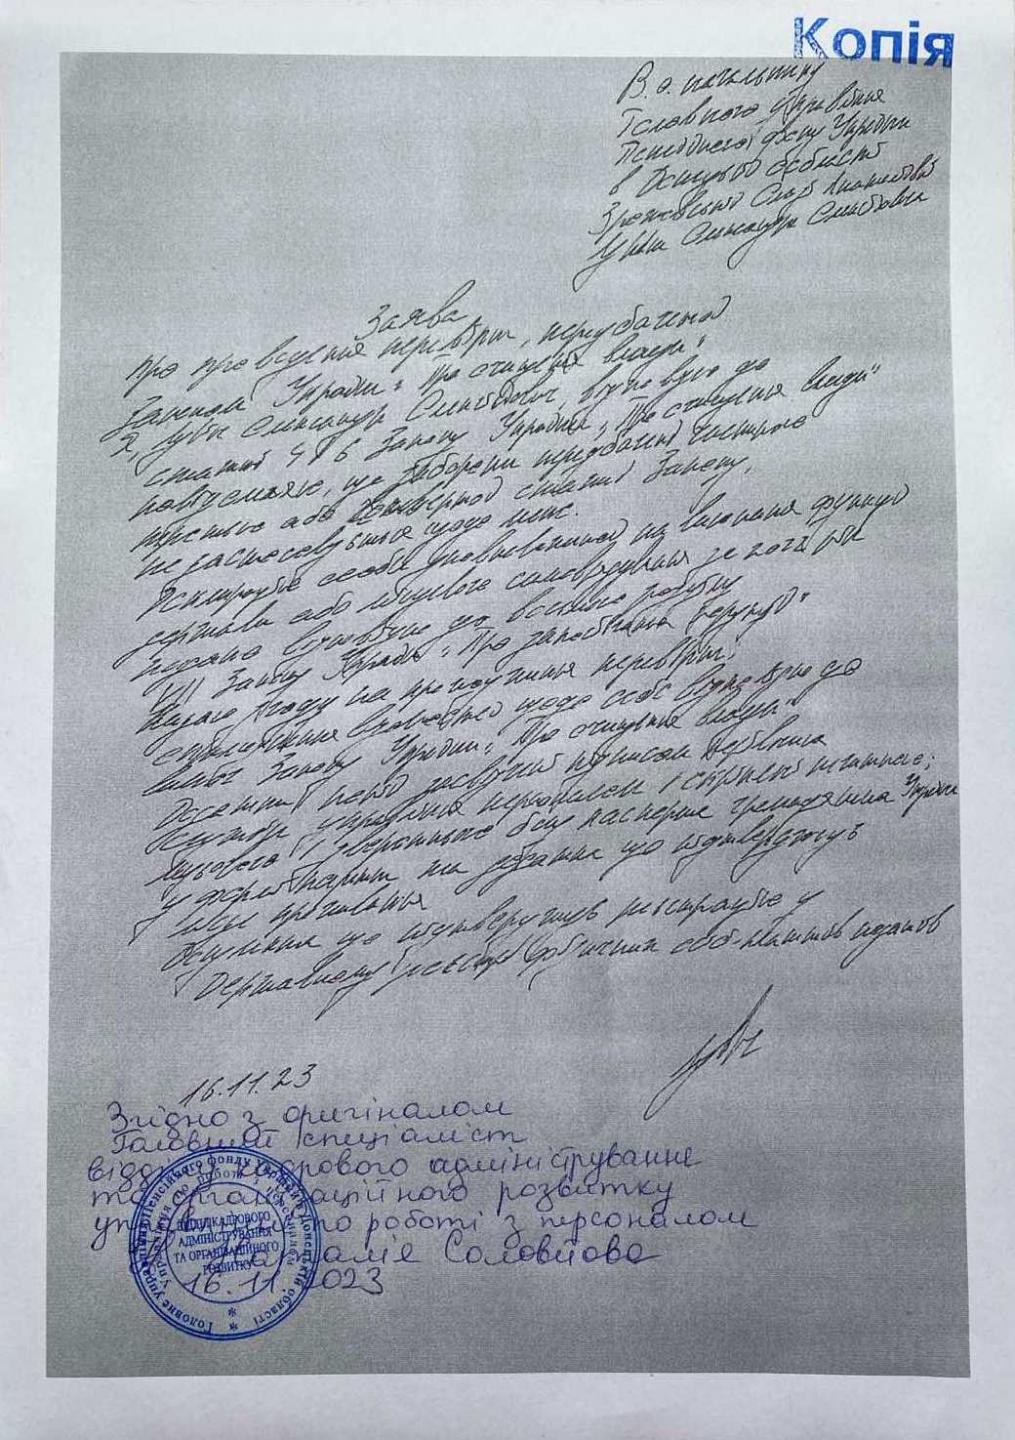 Копія
В. о. начальнику
Головного управління
Пенсійного фонду України
в Донецькій області
Олександра Олексійовича
Заява
про проведення перевірки, передбаченої
Законом України „Про очищення влади"
Я, Олександр Олексійович, відповідно до
статті 4 і 6 Закону України „Про очищення влади"
повідомляю, що заборони передбачені частиною
третьою або четвертою статті 1 Закону,
не застосовуються щодо мене.
Декларацію особи уповноваженої на виконання функцій
держави або місцевого самоврядування за 2022 рік
подано відповідно до вимог розділу
VII Закону України „Про запобігання корупції"
Надаю згоду на проходження перевірки
оприлюднення відомостей щодо себе відповідно до
вимог Закону України „Про очищення влади"
Додатки: копії засвідчені підписом керівника
служби управління персоналом і скріплені печаткою;
паспорта громадянина України
у формі картки та додатка що підтверджують
місце проживання
документа що підтверджує реєстрацію у
Державному реєстрі фізичних осіб-платників податків
16.11.23
Згідно з оригіналом
Головний спеціаліст
відділу кадрового адміністрування
та організаційного розвитку
управління по роботі з персоналом
Наталія Соловйова
16.11.2023
Головне управління Пенсійного фонду України в Донецькій області
Управління по роботі з персоналом
ВІДДІЛ КАДРОВОГО
АДМІНІСТРУВАННЯ
ТА ОРГАНІЗАЦІЙНОГО
РОЗВИТКУ